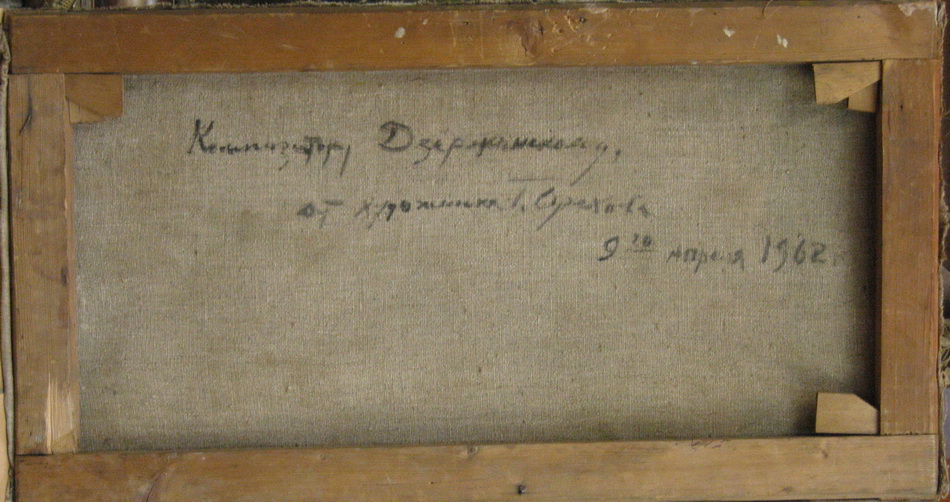 Композитору Дзержинскому,
от художника В. Орехова
9го апреля 1962 г.